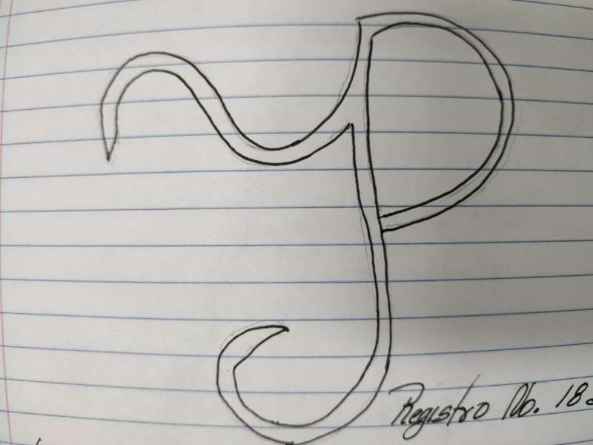 Registro No. 18